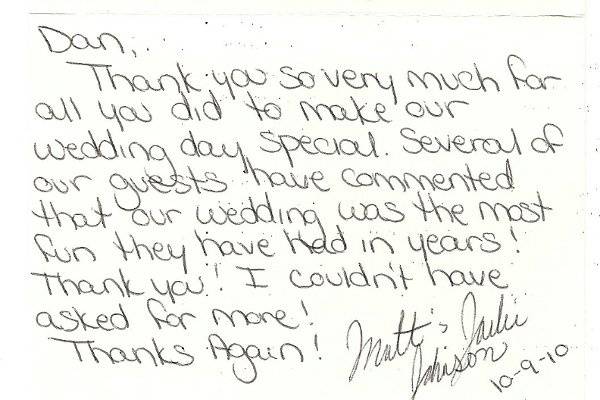 Dan,
Thank you so very much for
all you did to make our
wedding day special. Several of
our guests have commented
that our wedding was the most
fun they have had in years!
Thank you! I couldn't have
asked for more!
Thanks Again!
Matt
Johnson
10-9-10